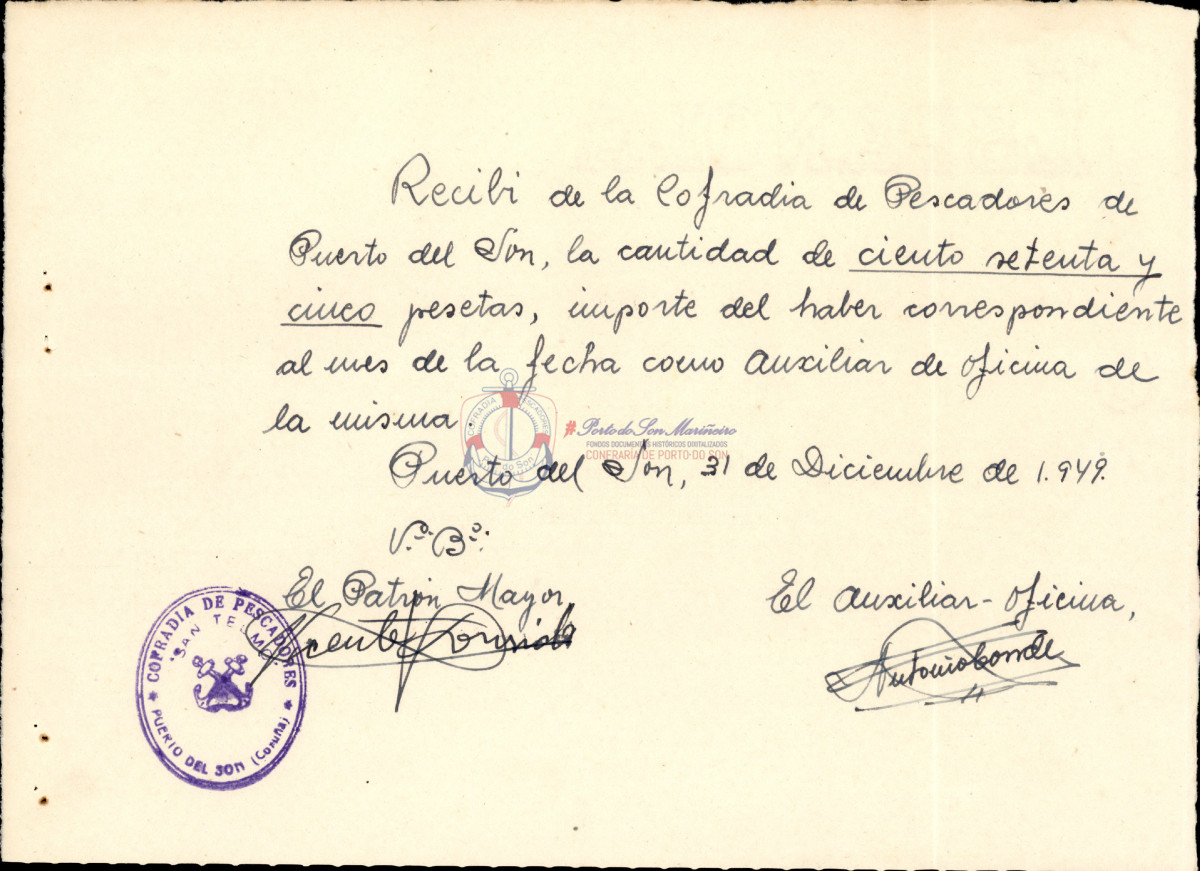 Recibi de la Cofradia de Pescadores de
Puerto del Son, la cantidad de ciento setenta y
cinco pesetas, importe del haber correspondiente
al mes de la fecha como Auxiliar de Oficina de
la misma.
COFRADIA PESCADORES
Porto do Son
#Porto do Son Mariñeiro
FONDOS DOCUMENTAIS HISTÓRICOS DIXITALIZADOS
CONFRARÍA DE PORTO DO SON
Puerto del Son, 31 de Diciembre de 1.949.
Vº. Bº:
El Patrón Mayor,
El Auxiliar-Oficina,
Vicente
Antonio Conde
COFRADIA DE PESCADORES
"SAN TELMO"
PUERTO DEL SON (Coruña)